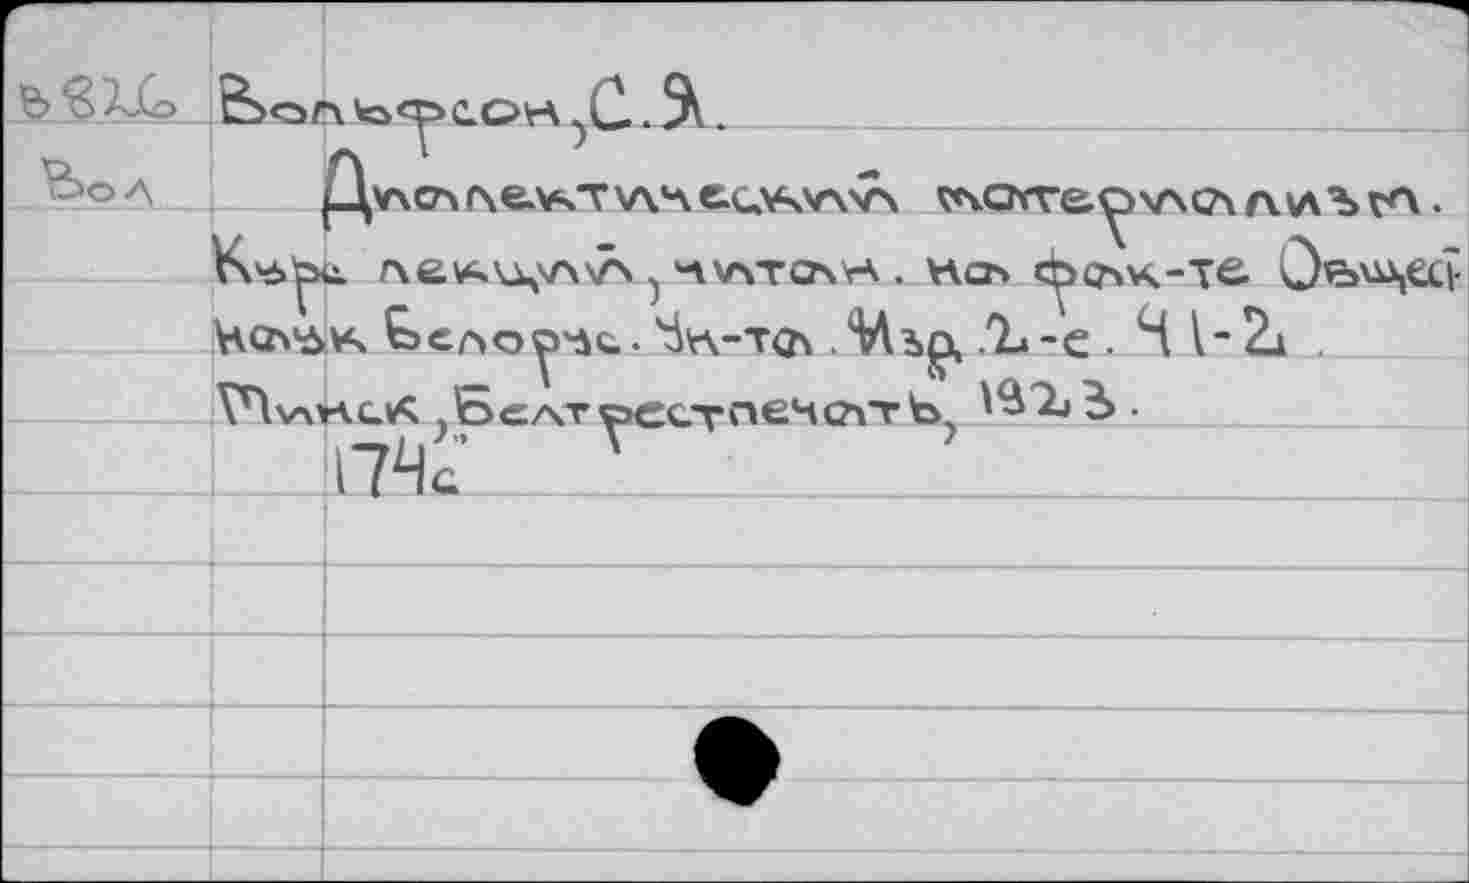 ъ826 Вольфсон, С. Я.
Вол Диалектический материализм.
Курс лекций, читан. на фак-те Общест
наук Белорус. Ун-та. Изд. 2-е. Ч 1-2.
Минск, Белтрестпечать, 1923.
174с